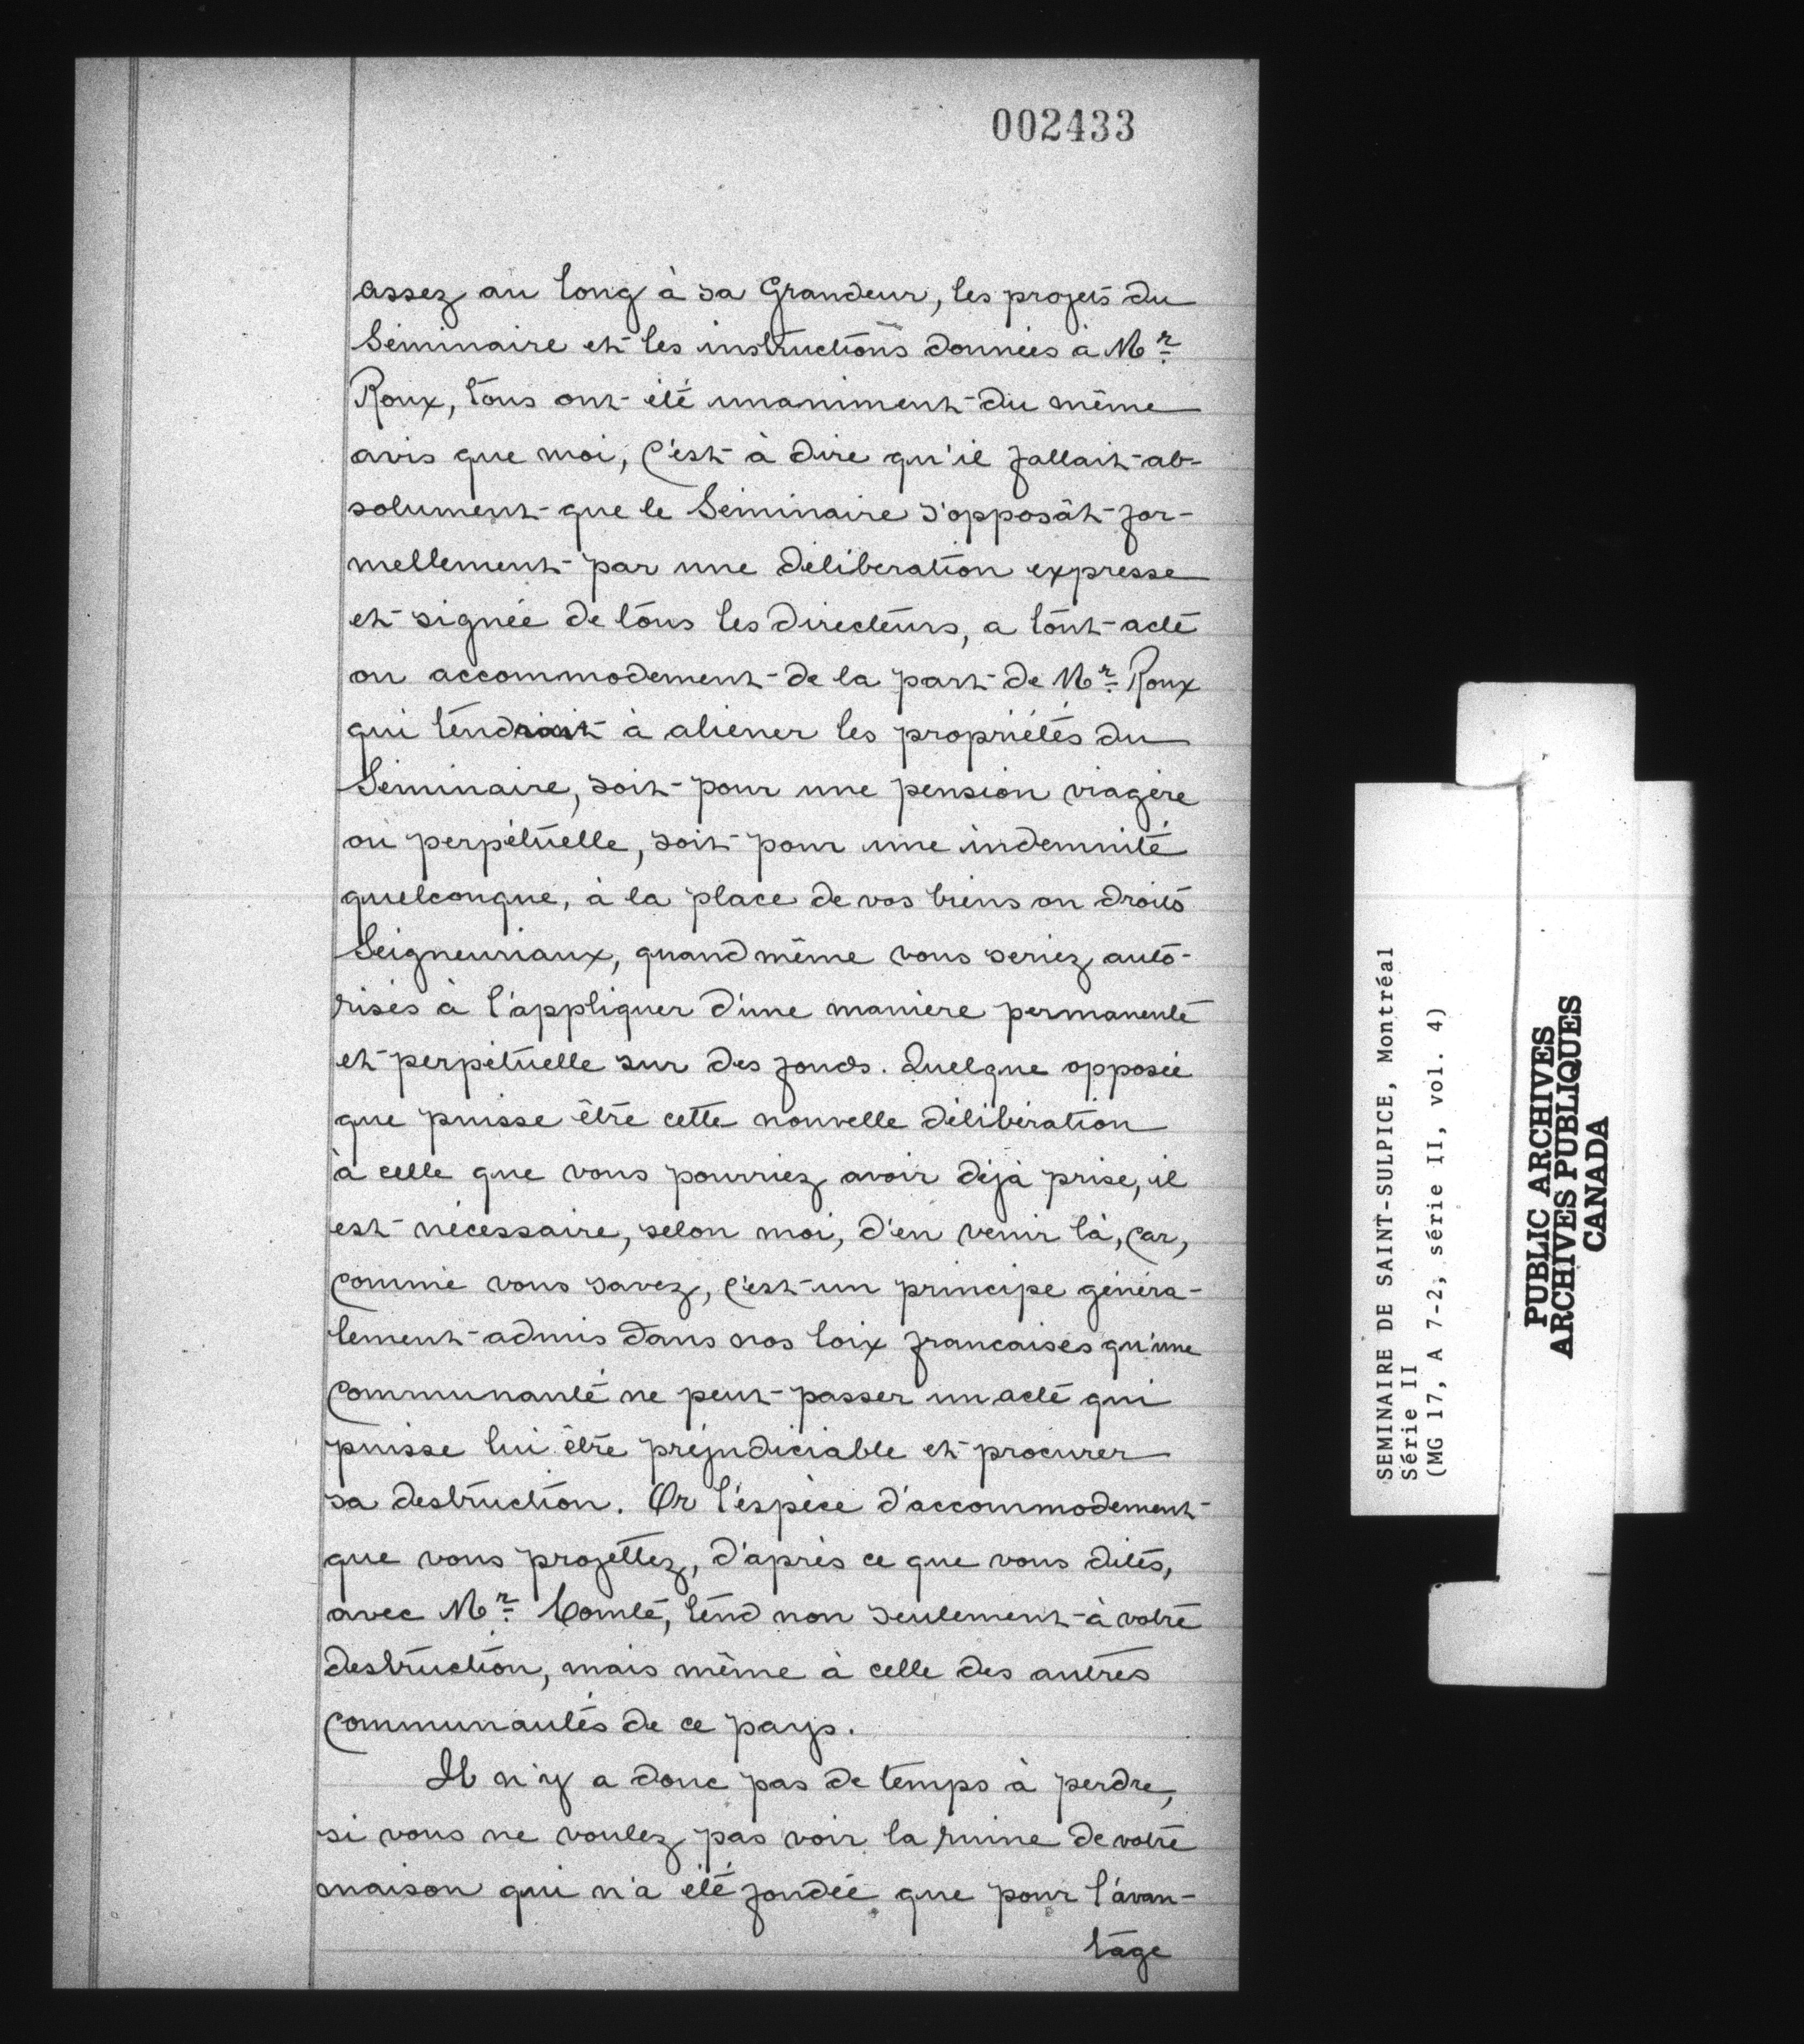 002433
assez au long à sa Grandeur, les projets du
Séminaire et les instructions données à Mr.
Roux, tous ont été unaniment du même
avis que moi, c'est à dire qu'il fallait ab-
solument que le Séminaire s'opposât for-
mellement par une délibération expresse
et signée de tous les directeurs, a tout acte
ou accommodement de la part de Mr. Roux
qui tendrait à aliéner les propriétés du
Séminaire, soit pour une pension viagère
ou perpétuelle, soit pour une indemnité
quelconque, à la place de vos biens ou droits
Seigneuriaux, quand même vous seriez auto-
risés à l'appliquer d'une manière permanente
et perpétuelle sur des fonds. Quelque opposée
que puisse être cette nouvelle délibération
à celle que vous pourriez avoir déjà prise, il
est nécessaire, selon moi, d'en venir là, car,
comme vous savez, c'est un principe généra-
lement admis dans nos loix francaises qu'une
communauté ne peut passer un acte qui
puisse lui être préjudiciable et procurer
sa destruction. Or l'espèce d'accommodement
que vous projettez, d'après ce que vous dites,
avec Mr. Comte, tend non seulement à votre
destruction, mais même à celle des autres
communautés de ce pays.
Il n'y a donc pas de temps à perdre,
si vous ne voulez pas voir la ruine de votre
maison qui n'a été fondée que pour l'avan-
tage
SEMINAIRE DE SAINT-SULPICE, Montréal
Série II
(MG 17, A 7-2, série II, vol. 4)
PUBLIC ARCHIVES
ARCHIVES PUBLIQUES
CANADA